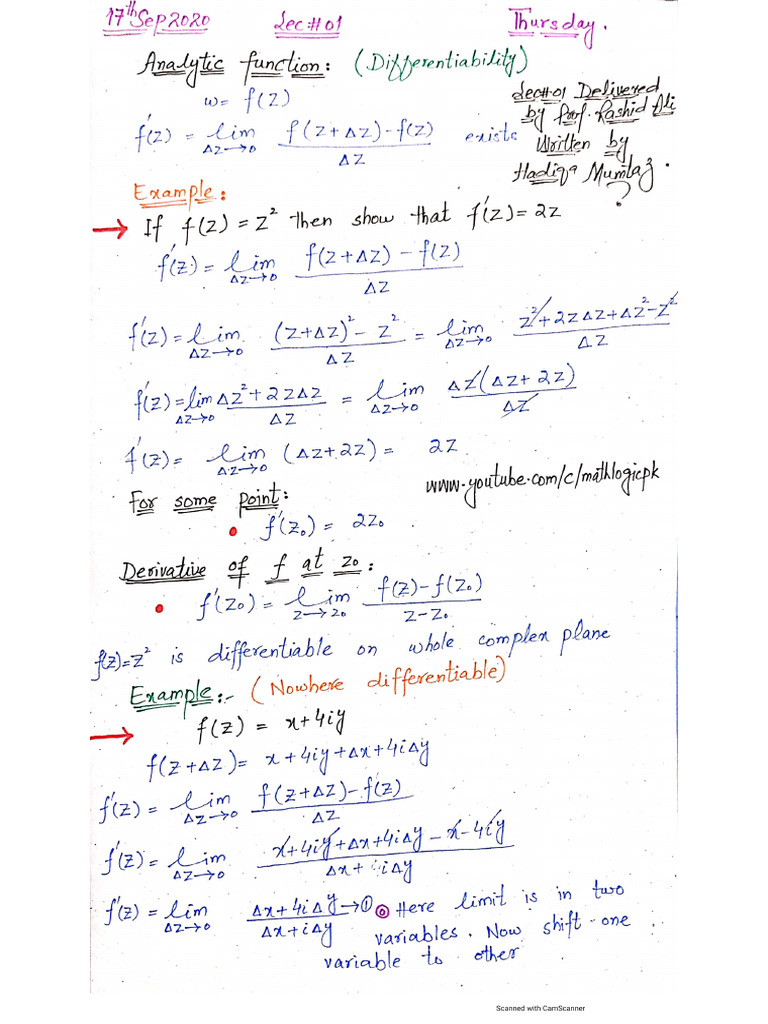 17th Sep 2020 Lec#01 Thursday.
Analytic function: (Differentiability)
w= f(z)
f'(z) = lim Δz→0 f(z+Δz)-f(z) / Δz exists
Lec#01 Delivered
by Prof. Rashid Ali
Written by
Hadiqa Mumtaz.
Example:
→ If f(z) = z² then show that f'(z) = 2z ?
f'(z) = lim Δz→0 f(z+Δz) - f(z) / Δz
f'(z) = lim Δz→0 (z+Δz)² - z² / Δz = lim Δz→0 z²+2zΔz+Δz²-z² / Δz
f'(z) = lim Δz→0 Δz²+2zΔz / Δz = lim Δz→0 Δz(Δz+2z) / Δz
f'(z) = lim Δz→0 (Δz+2z) = 2z
www.youtube.com/c/mathlogicpk
For some point:
• f'(z₀) = 2z₀
Derivative of f at z₀:
• f'(z₀) = lim z→z₀ f(z)-f(z₀) / z-z₀
f(z)=z² is differentiable on whole complex plane
Example:- (Nowhere differentiable)
→ f(z) = x+4iy
f(z+Δz) = x+4iy+Δx+4iΔy
f'(z) = lim Δz→0 f(z+Δz)-f(z) / Δz
f'(z) = lim Δz→0 x+4iy+Δx+4iΔy-x-4iy / Δx+iΔy
f'(z) = lim Δz→0 Δx+4iΔy / Δx+iΔy →① ◎ Here limit is in two
variables. Now shift one
variable to other
Scanned with CamScanner